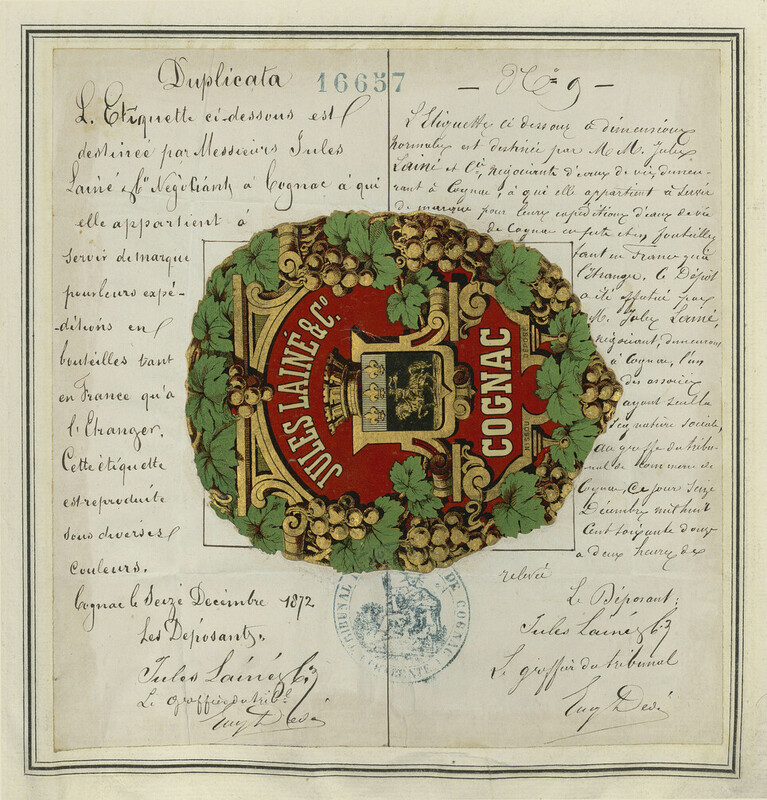 Duplicata
16657
L'Etiquette ci-dessous est
destinée par Messieurs Jules
Lainé & Cie Négociants à Cognac à qui
elle appartient à
servir de marque
pour leurs expé-
ditions en
bouteilles tant
en France qu'à
l'Etranger.
Cette étiquette
est reproduite
sous diverses
couleurs.
Cognac le Seize Decembre 1872
Les Déposants,
Jules Lainé & Co
Le greffier du tribal
Eug Devé
— No 9 —
L'Etiquette ci dessous à dimensions
normales est destinée par M M. Jules
Lainé et Cie, négociants d'eaux de vie, demeu-
rant à Cognac, à qui elle appartient à servir
de marque pour leurs expéditions d'eaux de vie
de Cognac en futs et en bouteilles
tant en France qu'à
l'étranger. Ce Dépôt
a été effectué par
M. Jules Lainé,
négociant, demeurant
à Cognac, l'un
des associés
ayant seul la
signature sociale,
au greffe du tribu-
nal de commerce de
Cognac, Ce jour Seize
Décembre mil huit
Cent soixante douze
a deux heures de
relevée
Le Déposant:
Jules Lainé & Co
Le greffier du tribunal
Eug Devé
JULES LAINÉ & Co.
COGNAC
DÉPOSÉ
NISSOU
TRIBUNAL DE COGNAC
(CHARENTE)